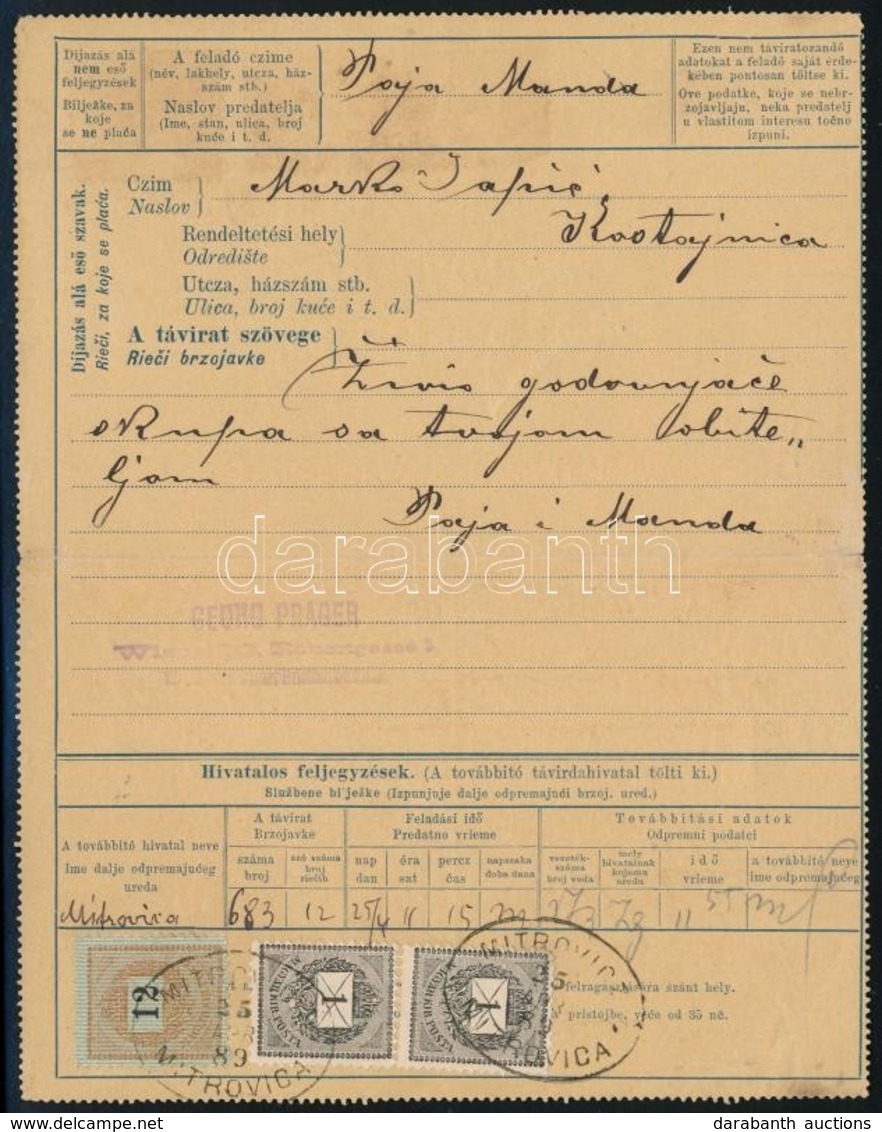 Dijazás alá
nem eső
feljegyzések
Bilježke, za
koje
se ne plaća
A feladó czime
(név, lakhely, utcza, ház-
szám stb.)
Naslov predatelja
(Ime, stan, ulica, broj
kuće i t. d.
Paja Manda
Ezen nem táviratozandó
adatokat a feladó saját érde-
kében pontosan töltse ki.
Ove podatke, koje se nebr-
zojavljaju, neka predatelj
u vlastitom interesu točno
izpuni.
Dijazás alá eső szavak.
Rieči, za koje se plaća.
Czim
Naslov
Marko
Rendeltetési hely
Odredište
Kostajnica
Utcza, házszám stb.
Ulica, broj kuće i t. d.
A távirat szövege
Rieči brzojavke
Živio godovnjače
skupa sa tvojom obite„
ljom
Paja i Manda
darabanth
GEORG PRAGER
Hivatalos feljegyzések. (A továbbitó távirdahivatal tölti ki.)
Službene bilježke (Izpunjuje dalje odpremajući brzoj. ured.)
A továbbitó hivatal neve
Ime dalje odpremajućeg
ureda
A távirat
Brzojavke
száma
broj
szó száma
broj
riečih
Feladási idő
Predatno vrieme
nap
dan
óra
sat
percz
čas
napszaka
doba dana
Továbbítási adatok
Odpremni podatci
vezeték-
száma
broj voda
mely
hivatalnak
kojemu
uredu
idő
vrieme
a továbbító neve
ime odpremajućeg
Mitrovica 683 12 25/4 11 15 273 Zg 11 55
12
MITROVICA
MITROVICA
89
1
MAGYAR KIR. POSTA
1
MAGYAR KIR. POSTA
MITROVICA
MITROVICA
felragasztására szánt hely.
pristojbe, veće od 35 nč.
www.darabanth.com
darabanth auctions